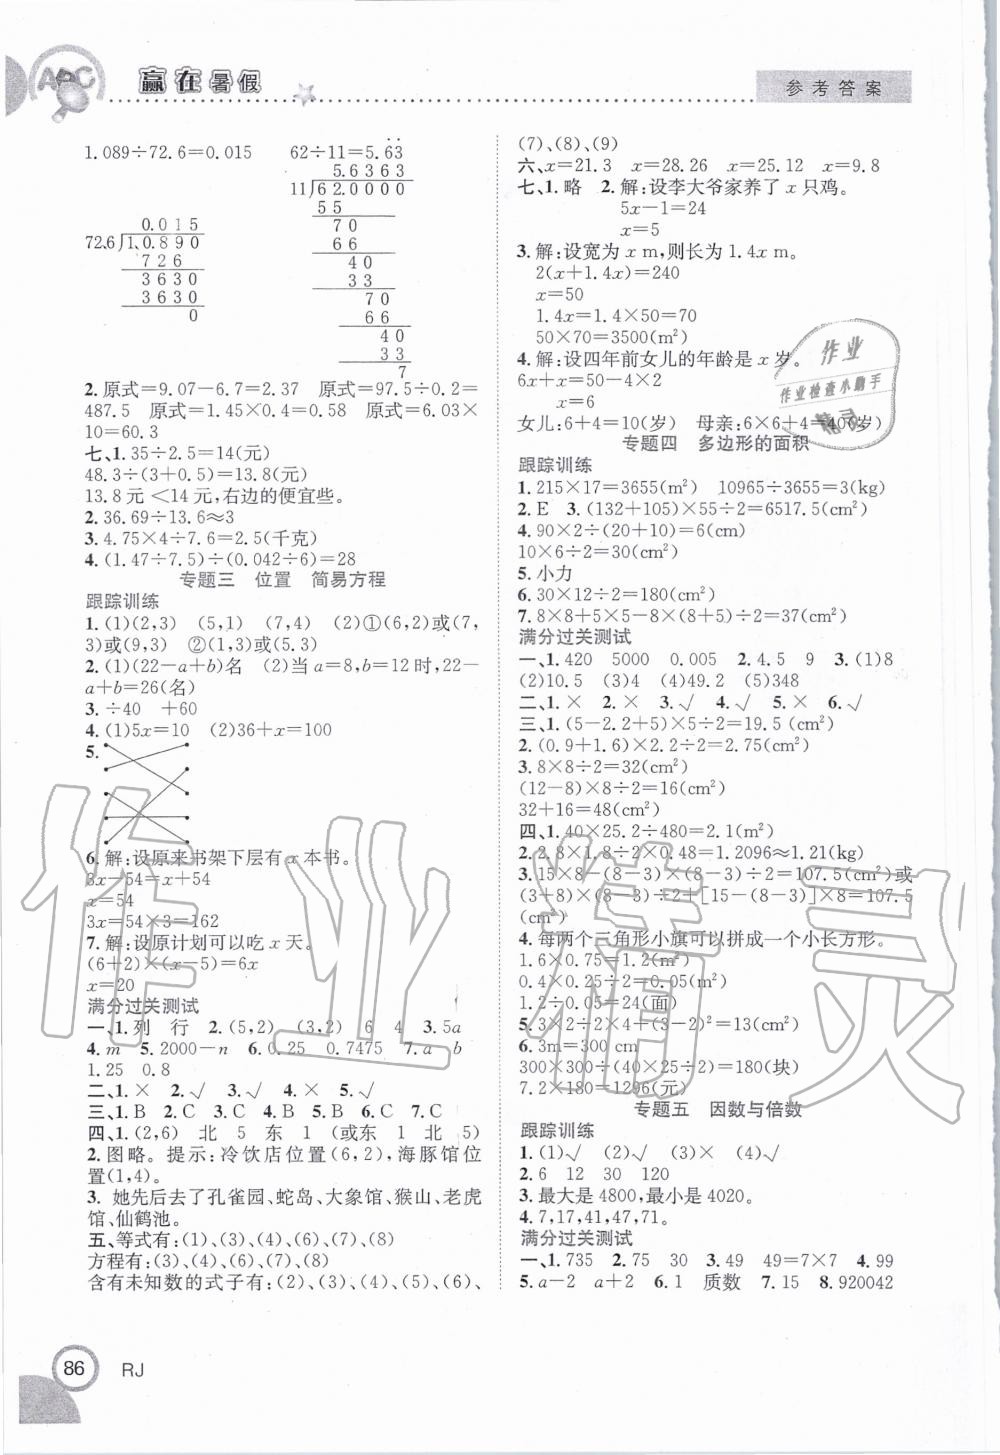 赢在暑假
参考答案
1.089÷72.6=0.015 62÷11=5.6̇3̇
5.6363
11 620000
55
70
66
40
33
70
66
40
33
7
0.015
72.6 1.0890
726
3630
3630
0
2.原式=9.07-6.7=2.37 原式=97.5÷0.2=
487.5 原式=1.45×0.4=0.58 原式=6.03×
10=60.3
七、1.35÷2.5=14(元)
48.3÷(3+0.5)=13.8(元)
13.8元<14元,右边的便宜些。
2.36.69÷13.6≈3
3.4.75×4÷7.6=2.5(千克)
4.(1.47÷7.5)÷(0.042÷6)=28
专题三 位置 简易方程
跟踪训练
1.(1)(2,3) (5,1) (7,4) (2)①(6,2)或(7,
3)或(9,3) ②(1,3)或(5.3)
2.(1)(22-a+b)名 (2)当a=8,b=12时,22-
a+b=26(名)
3.÷40 +60
4.(1)5x=10 (2)36+x=100
5.
6.解:设原来书架下层有x本书。
3x-54=x+54
x=54
3x=54×3=162
7.解:设原计划可以吃x天。
(6+2)×(x-5)=6x
x=20
满分过关测试
一、1.列 行 2.(5,2) (3,2) 6 4 3.5a
4.m 5.2000-n 6.0.25 0.7475 7.a b
1.25 0.8
二、1.× 2.√ 3.√ 4.√ 5.√
三、1.B 2.C 3.C 4.B 5.B 6.C 7.C
四、1.(2,6) 北 5 东 1 (或东 1 北 5)
2.图略。提示:冷饮店位置(6,2),海豚馆位
置(1,4)。
3. 她先后去了孔雀园、蛇岛、大象馆、猴山、老虎
馆、仙鹤池。
五、等式有:(1)、(3)、(4)、(6)、(7)、(8)
方程有:(3)、(4)、(6)、(7)、(8)
含有未知数的式子有:(2)、(3)、(4)、(5)、(6)、
(7)、(8)、(9)
六、x=21.3 x=28.26 x=25.12 x=9.8
七、1.略 2.解:设李大爷家养了x只鸡。
5x-1=24
x=5
3.解:设宽为x m,则长为1.4x m。
2(x+1.4x)=240
x=50
1.4x=1.4×50=70
50×70=3500(m²)
4.解:设四年前女儿的年龄是x岁。
6x+x=50-4×2
x=6
女儿:6+4=10(岁) 母亲:6×6+4=40(岁)
专题四 多边形的面积
跟踪训练
1.215×17=3655(m²) 10965÷3655=3(kg)
2.E 3.(132+105)×55÷2=6517.5(cm²)
4.90×2÷(20+10)=6(cm)
10×6÷2=30(cm²)
5.小力
6.30×12÷2=180(cm²)
7.8×8+5×5-8×(8+5)÷2=37(cm²)
满分过关测试
一、1.420 5000 0.005 2.4.5 9 3.(1)8
(2)10.5 (3)4 (4)49.2 (5)348
二、1.× 2.× 3.√ 4.√ 5.× 6.√
三、1.(5-2.2+5)×5÷2=19.5(cm²)
2.(0.9+1.6)×2.2÷2=2.75(cm²)
3.8×8÷2=32(cm²)
(12-8)×8÷2=16(cm²)
32+16=48(cm²)
四、1.40×25.2÷480=2.1(m²)
2.2.8×1.8÷2×0.48=1.2096≈1.21(kg)
3.15×8-(8-3)×(8-3)÷2=107.5(cm²)或
(3+8)×(8-3)÷2+[15-(8-3)]×8=107.5
(cm²)
4.每两个三角形小旗可以拼成一个小长方形。
1.6×0.75=1.2(m²)
0.4×0.25÷2=0.05(m²)
1.2÷0.05=24(面)
5.3×2÷2×4+(3-2)²=13(cm²)
6.3m=300 cm
300×300÷(40×25÷2)=180(块)
7.2×180=1296(元)
专题五 因数与倍数
跟踪训练
1.(1)√ (2)√ (3)× (4)√
2.6 12 30 120
3.最大是4800,最小是4020。
4.7,17,41,47,71。
满分过关测试
一、1.735 2.75 30 3.49 49=7×7 4.99
5.a-2 a+2 6.1 质数 7.15 8.920042
86 RJ
作业
作业检查小助手
精灵
作业精灵